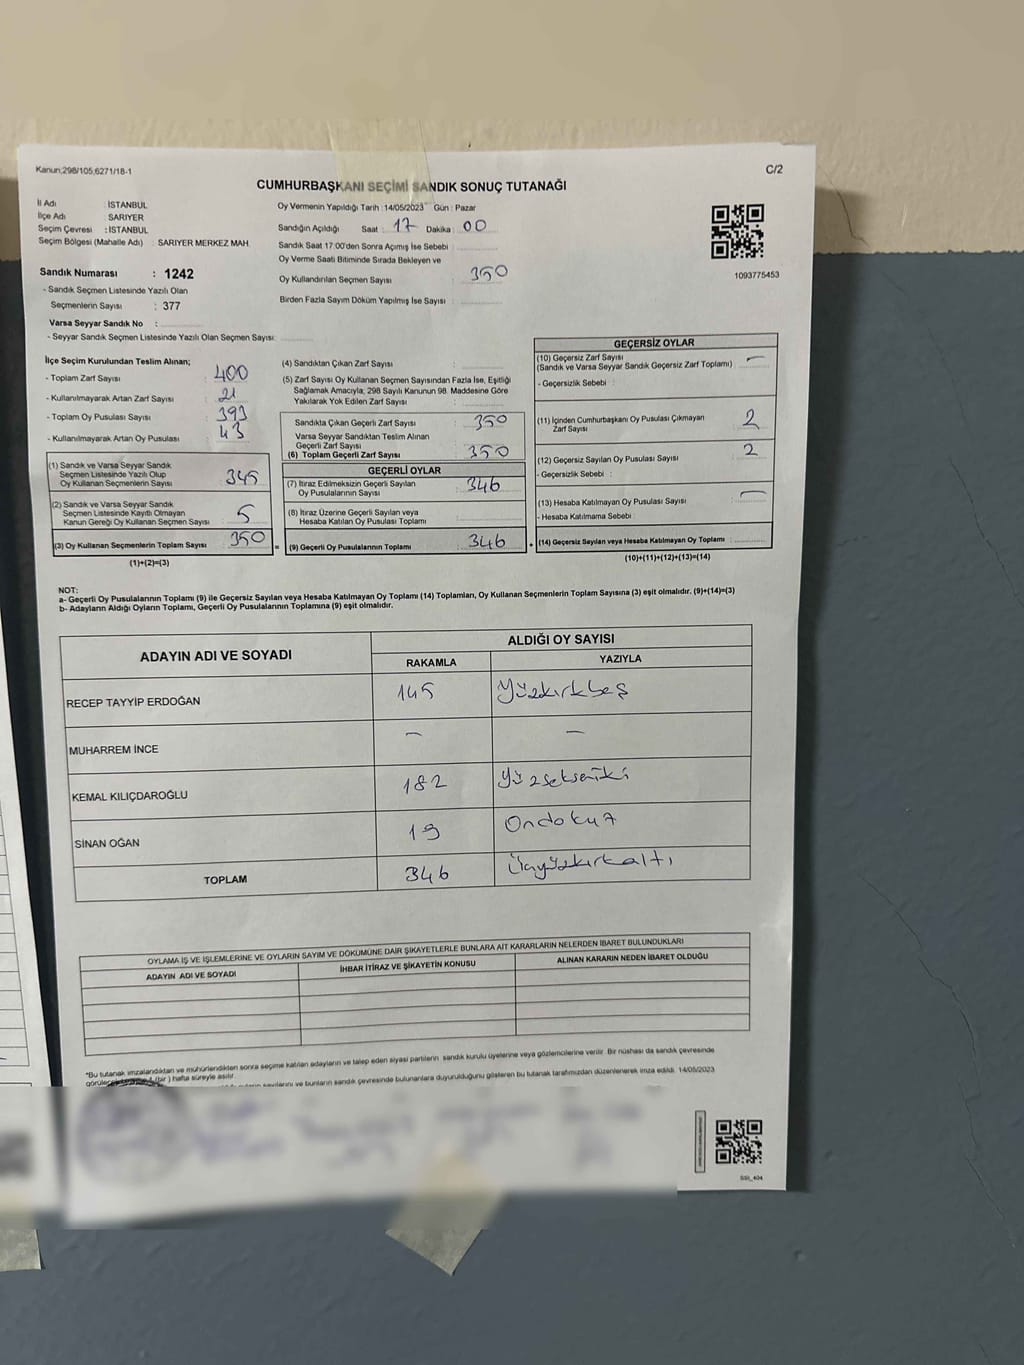 Kanun;298/105,6271/18-1
C/2
CUMHURBAŞKANI SEÇİMİ SANDIK SONUÇ TUTANAĞI
İl Adı : İSTANBUL
İlçe Adı : SARIYER
Seçim Çevresi : İSTANBUL
Seçim Bölgesi (Mahalle Adı) : SARIYER MERKEZ MAH.
Sandık Numarası : 1242
- Sandık Seçmen Listesinde Yazılı Olan
Seçmenlerin Sayısı : 377
Varsa Seyyar Sandık No :
- Seyyar Sandık Seçmen Listesinde Yazılı Olan Seçmen Sayısı:
Oy Vermenin Yapıldığı Tarih : 14/05/2023 Gün : Pazar
Sandığın Açıldığı Saat : 17 Dakika : 00
Sandık Saat 17:00'den Sonra Açımış İse Sebebi :
Oy Verme Saati Bitiminde Sırada Bekleyen ve
Oy Kullandırılan Seçmen Sayısı : 350
Birden Fazla Sayım Döküm Yapılmış İse Sayısı :
1093775453
İlçe Seçim Kurulundan Teslim Alınan;
- Toplam Zarf Sayısı : 400
- Kullanılmayarak Artan Zarf Sayısı : 21
- Toplam Oy Pusulası Sayısı : 393
- Kullanılmayarak Artan Oy Pusulası : 43
(1) Sandık ve Varsa Seyyar Sandık
Seçmen Listesinde Yazılı Olup
Oy Kullanan Seçmenlerin Sayısı : 345
(2) Sandık ve Varsa Seyyar Sandık
Seçmen Listesinde Kayıtlı Olmayan
Kanun Gereği Oy Kullanan Seçmen Sayısı : 5
(3) Oy Kullanan Seçmenlerin Toplam Sayısı : 350
(1)+(2)=(3)
(4) Sandıktan Çıkan Zarf Sayısı :
(5) Zarf Sayısı Oy Kullanan Seçmen Sayısından Fazla İse, Eşitliği
Sağlamak Amacıyla, 298 Sayılı Kanunun 98. Maddesine Göre
Yakılarak Yok Edilen Zarf Sayısı :
Sandıkta Çıkan Geçerli Zarf Sayısı : 350
Varsa Seyyar Sandıktan Teslim Alınan
Geçerli Zarf Sayısı :
(6) Toplam Geçerli Zarf Sayısı : 350
GEÇERLİ OYLAR
(7) İtiraz Edilmeksizin Geçerli Sayılan
Oy Pusulalarının Sayısı : 346
(8) İtiraz Üzerine Geçerli Sayılan veya
Hesaba Katılan Oy Pusulası Toplamı :
= (9) Geçerli Oy Pusulalarının Toplamı : 346
GEÇERSİZ OYLAR
(10) Geçersiz Zarf Sayısı : —
(Sandık ve Varsa Seyyar Sandık Geçersiz Zarf Toplamı)
- Geçersizlik Sebebi :
(11) İçinden Cumhurbaşkanı Oy Pusulası Çıkmayan
Zarf Sayısı : 2
(12) Geçersiz Sayılan Oy Pusulası Sayısı : 2
- Geçersizlik Sebebi :
(13) Hesaba Katılmayan Oy Pusulası Sayısı : —
- Hesaba Katılmama Sebebi :
+ (14) Geçersiz Sayılan veya Hesaba Katılmayan Oy Toplamı :
(10)+(11)+(12)+(13)=(14)
NOT:
a- Geçerli Oy Pusulalarının Toplamı (9) ile Geçersiz Sayılan veya Hesaba Katılmayan Oy Toplamı (14) Toplamları, Oy Kullanan Seçmenlerin Toplam Sayısına (3) eşit olmalıdır. (9)+(14)=(3)
b- Adayların Aldığı Oyların Toplamı, Geçerli Oy Pusulalarının Toplamına (9) eşit olmalıdır.
ADAYIN ADI VE SOYADI
ALDIĞI OY SAYISI
RAKAMLA YAZIYLA
RECEP TAYYİP ERDOĞAN 145 Yüzkırkbeş
MUHARREM İNCE — —
KEMAL KILIÇDAROĞLU 182 Yüzsekseniki
SİNAN OĞAN 19 Ondokuz
TOPLAM 346 Üçyüzkırkaltı
OYLAMA İŞ VE İŞLEMLERİNE VE OYLARIN SAYIM VE DÖKÜMÜNE DAİR ŞİKAYETLERLE BUNLARA AİT KARARLARIN NELERDEN İBARET BULUNDUKLARI
ADAYIN ADI VE SOYADI İHBAR İTİRAZ VE ŞİKAYETİN KONUSU ALINAN KARARIN NEDEN İBARET OLDUĞU
*Bu tutanak imzalandıktan ve mühürlendikten sonra seçime katılan adayların ve talep eden siyasi partilerin sandık kurulu üyelerine veya gözlemcilerine verilir. Bir nüshası da sandık çevresinde
(bir) hafta süreyle asılır.
sayılarını ve bunların sandık çevresinde bulunanlara duyurulduğunu gösteren bu tutanak tarafımızdan düzenlenerek imza edildi. 14/05/2023